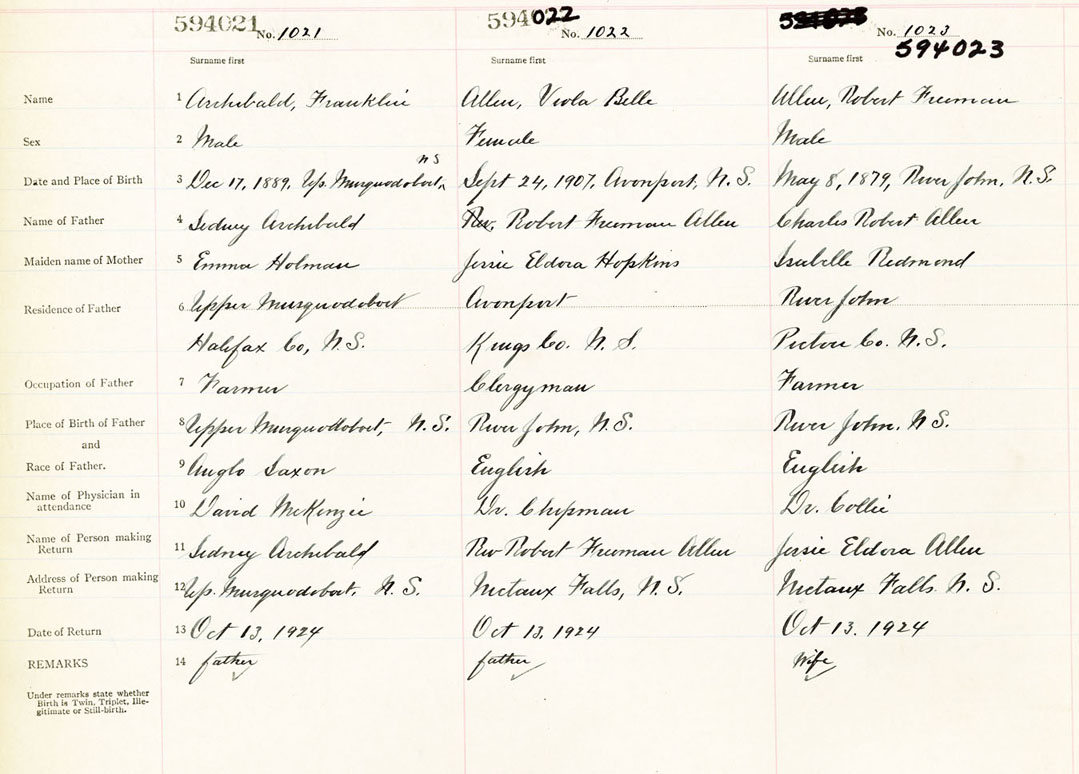 594021 No. 1021 594022 No. 1022 No. 1023
594023
Surname first Surname first Surname first
Name 1 Archibald, Franklin Allen, Viola Belle Allen, Robert Freeman
Sex 2 Male Female Male
N S
Date and Place of Birth 3 Dec 17, 1889, Up. Musquodoboit, Sept 24, 1907, Avonport, N.S. May 8, 1879, River John, N.S.
Name of Father 4 Sidney Archibald Rev. Robert Freeman Allen Charles Robert Allen
Maiden name of Mother 5 Emma Holman Jessie Eldora Hopkins Isabelle Redmond
Residence of Father 6 Upper Musquodoboit Avonport River John
Halifax Co, N.S. Kings Co. N.S. Pictou Co. N.S.
Occupation of Father 7 Farmer Clergyman Farmer
Place of Birth of Father 8 Upper Musquodoboit, N.S. River John, N.S. River John. N S.
and
Race of Father. 9 Anglo Saxon English English
Name of Physician in
attendance 10 David McKenzie Dr. Chipman Dr. Collie
Name of Person making
Return 11 Sidney Archibald Rev Robert Freeman Allen Jessie Eldora Allen
Address of Person making
Return 12 Up. Musquodoboit, N.S. Nictaux Falls, N.S. Nictaux Falls N.S.
Date of Return 13 Oct 13, 1924 Oct 13, 1924 Oct 13. 1924
REMARKS 14 father father Wife
Under remarks state whether
Birth is Twin, Triplet, Ille-
gitimate or Still-birth.